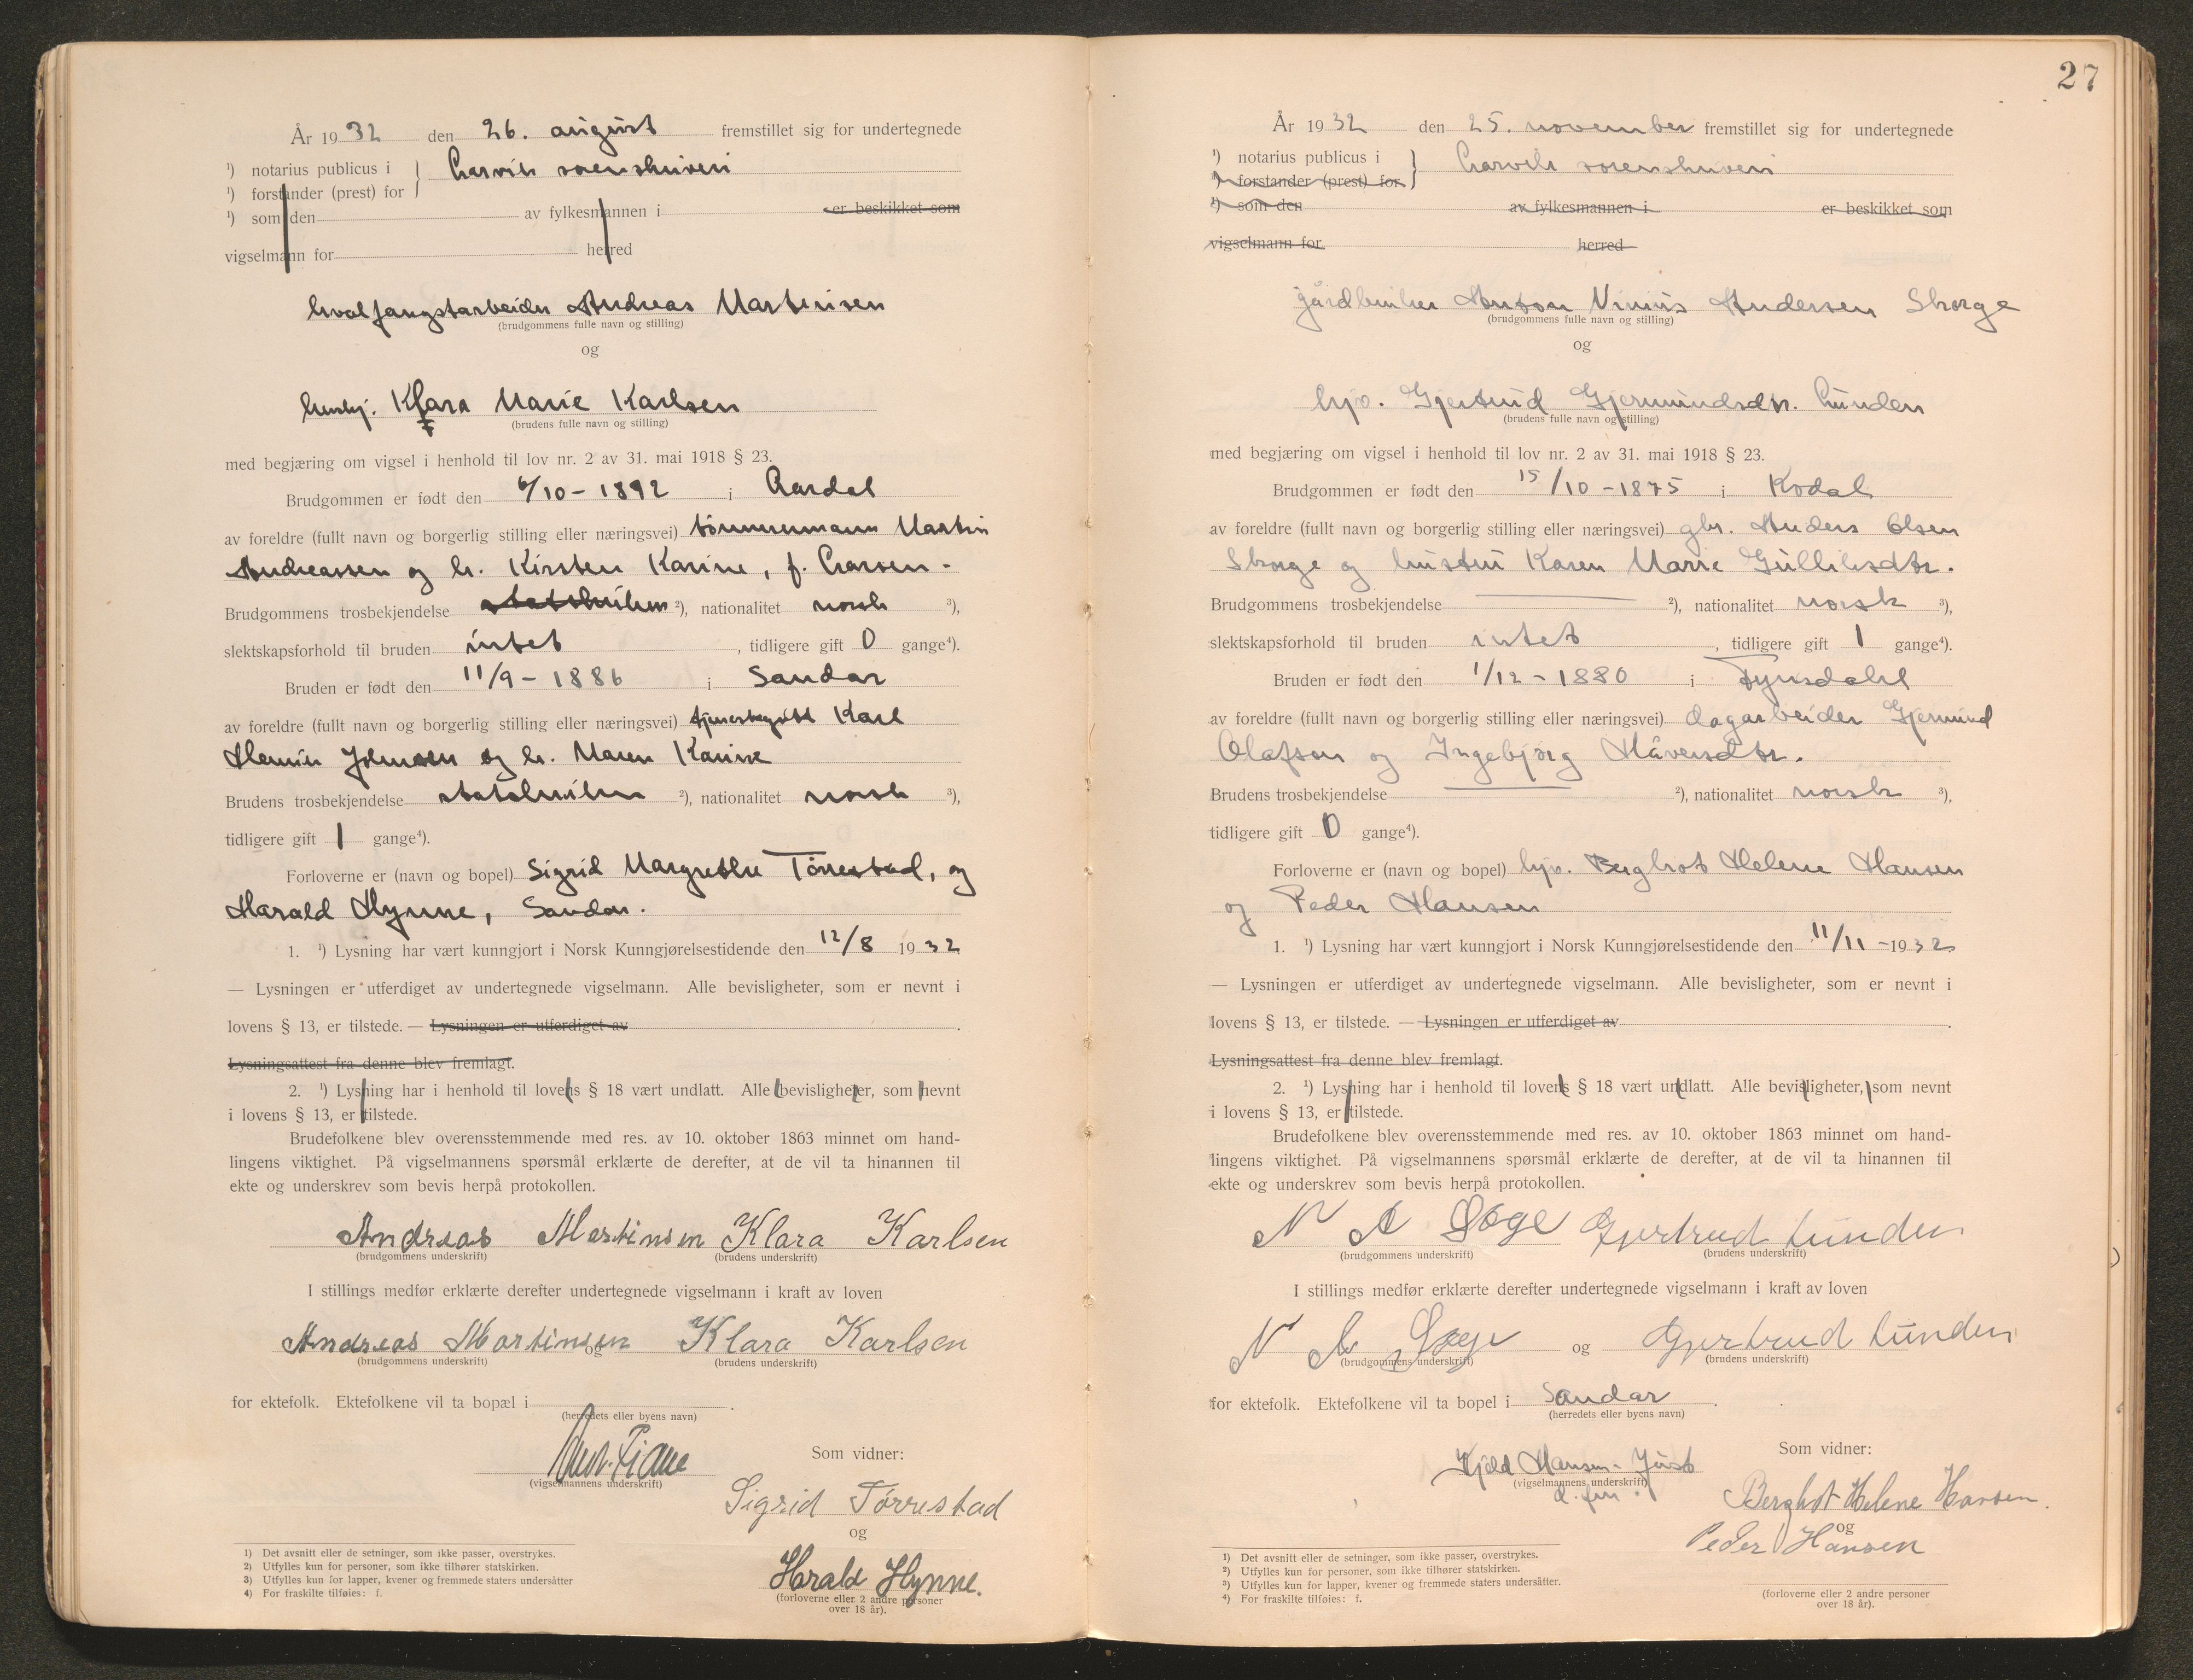 År 1932 den 26. august fremstillet sig for undertegnede
¹) notarius publicus i } Larvik sorenskriveri
¹) forstander (prest) for
¹) som den av fylkesmannen i er beskikket som
vigselmann for herred
hvalfangstarbeider Andreas Martinsen
(brudgommens fulle navn og stilling)
og
Klara Marie Karlsen
(brudens fulle navn og stilling)
med begjæring om vigsel i henhold til lov nr. 2 av 31. mai 1918 § 23.
Brudgommen er født den 6/10 - 1892 i Aardal
av foreldre (fullt navn og borgerlig stilling eller næringsvei) tømmermann Martin
Andreassen og h. Kirsten Karine, f. Larsen -
Brudgommens trosbekjendelse statskirken ²), nationalitet norsk ³),
slektskapsforhold til bruden intet, tidligere gift 0 gange⁴).
Bruden er født den 11/9 - 1886 i Sandar
av foreldre (fullt navn og borgerlig stilling eller næringsvei) Karl
Henrik Johnsen og h. Maren Karine
Brudens trosbekjendelse statskirken ²), nationalitet norsk ³),
tidligere gift 1 gange⁴).
Forloverne er (navn og bopel) Sigrid Margrethe Tørrestad, og
Harald Hynne, Sandar.
1. ¹) Lysning har vært kunngjort i Norsk Kunngjørelsestidende den 12/8 1932
— Lysningen er utferdiget av undertegnede vigselmann. Alle bevisligheter, som er nevnt i
lovens § 13, er tilstede. — Lysningen er utferdiget av .
Lysningsattest fra denne blev fremlagt.
2. ¹) Lysning har i henhold til lovens § 18 vært undlatt. Alle bevisligheter, som nevnt
i lovens § 13, er tilstede.
Brudefolkene blev overensstemmende med res. av 10. oktober 1863 minnet om hand-
lingens viktighet. På vigselmannens spørsmål erklærte de derefter, at de vil ta hinannen til
ekte og underskrev som bevis herpå protokollen.
Andreas Martinsen Klara Karlsen
(brudgommens underskrift) (brudens underskrift)
I stillings medfør erklærte derefter undertegnede vigselmann i kraft av loven
Andreas Martinsen og Klara Karlsen
(brudgommens underskrift) (brudens underskrift)
for ektefolk. Ektefolkene vil ta bopæl i .
(herredets eller byens navn)
(vigselmannens underskrift)
Som vidner:
Sigrid Tørrestad
og
Harald Hynne.
(forloverne eller 2 andre personer
over 18 år).
1) Det avsnitt eller de setninger, som ikke passer, overstrykes.
2) Utfylles kun for personer, som ikke tilhører statskirken.
3) Utfylles kun for lapper, kvener og fremmede staters undersåtter
4) For fraskilte tilføies: f.
27
År 1932 den 25. november fremstillet sig for undertegnede
¹) notarius publicus i } Larvik sorenskriveri
¹) forstander (prest) for
¹) som den av fylkesmannen i er beskikket som
vigselmann for herred
gårdbruker Anton Nimis Andersen Skorge
(brudgommens fulle navn og stilling)
og
hjv. Gjertrud Gjermundsdtr. Lunden
(brudens fulle navn og stilling)
med begjæring om vigsel i henhold til lov nr. 2 av 31. mai 1918 § 23.
Brudgommen er født den 15/10 - 1875 i Kodal
av foreldre (fullt navn og borgerlig stilling eller næringsvei) gbr. Anders Olsen
Skorge og hustru Karen Marie Gulliksdtr.
Brudgommens trosbekjendelse ²), nationalitet norsk ³),
slektskapsforhold til bruden intet, tidligere gift 1 gange⁴).
Bruden er født den 1/12 - 1880 i
av foreldre (fullt navn og borgerlig stilling eller næringsvei) dagarbeider Gjermund
Olafson og Ingebjørg Håversdtr.
Brudens trosbekjendelse ²), nationalitet norsk ³),
tidligere gift 0 gange⁴).
Forloverne er (navn og bopel) hjv. Berghot Helene Hansen
og Peder Hansen
1. ¹) Lysning har vært kunngjort i Norsk Kunngjørelsestidende den 11/11 - 1932
— Lysningen er utferdiget av undertegnede vigselmann. Alle bevisligheter, som er nevnt i
lovens § 13, er tilstede. — Lysningen er utferdiget av .
Lysningsattest fra denne blev fremlagt.
2. ¹) Lysning har i henhold til lovens § 18 vært undlatt. Alle bevisligheter, som nevnt
i lovens § 13, er tilstede.
Brudefolkene blev overensstemmende med res. av 10. oktober 1863 minnet om hand-
lingens viktighet. På vigselmannens spørsmål erklærte de derefter, at de vil ta hinannen til
ekte og underskrev som bevis herpå protokollen.
N A Gjertrud Lunden
(brudgommens underskrift) (brudens underskrift)
I stillings medfør erklærte derefter undertegnede vigselmann i kraft av loven
N A og Gjertrud Lunden
(brudgommens underskrift) (brudens underskrift)
for ektefolk. Ektefolkene vil ta bopel i Sandar .
(herredets eller byens navn)
Som vidner:
Kjeld Hansen - Just
(vigselmannens underskrift)
Berghot Helene Hansen.
og
Peder Hansen
(forloverne eller 2 andre personer
over 18 år).
1) Det avsnitt eller de setninger, som ikke passer, overstrykes.
2) Utfylles kun for personer, som ikke tilhører statskirken.
3) Utfylles kun for lapper, kvener og fremmede staters undersåtter.
4) For fraskilte tilføies: f.